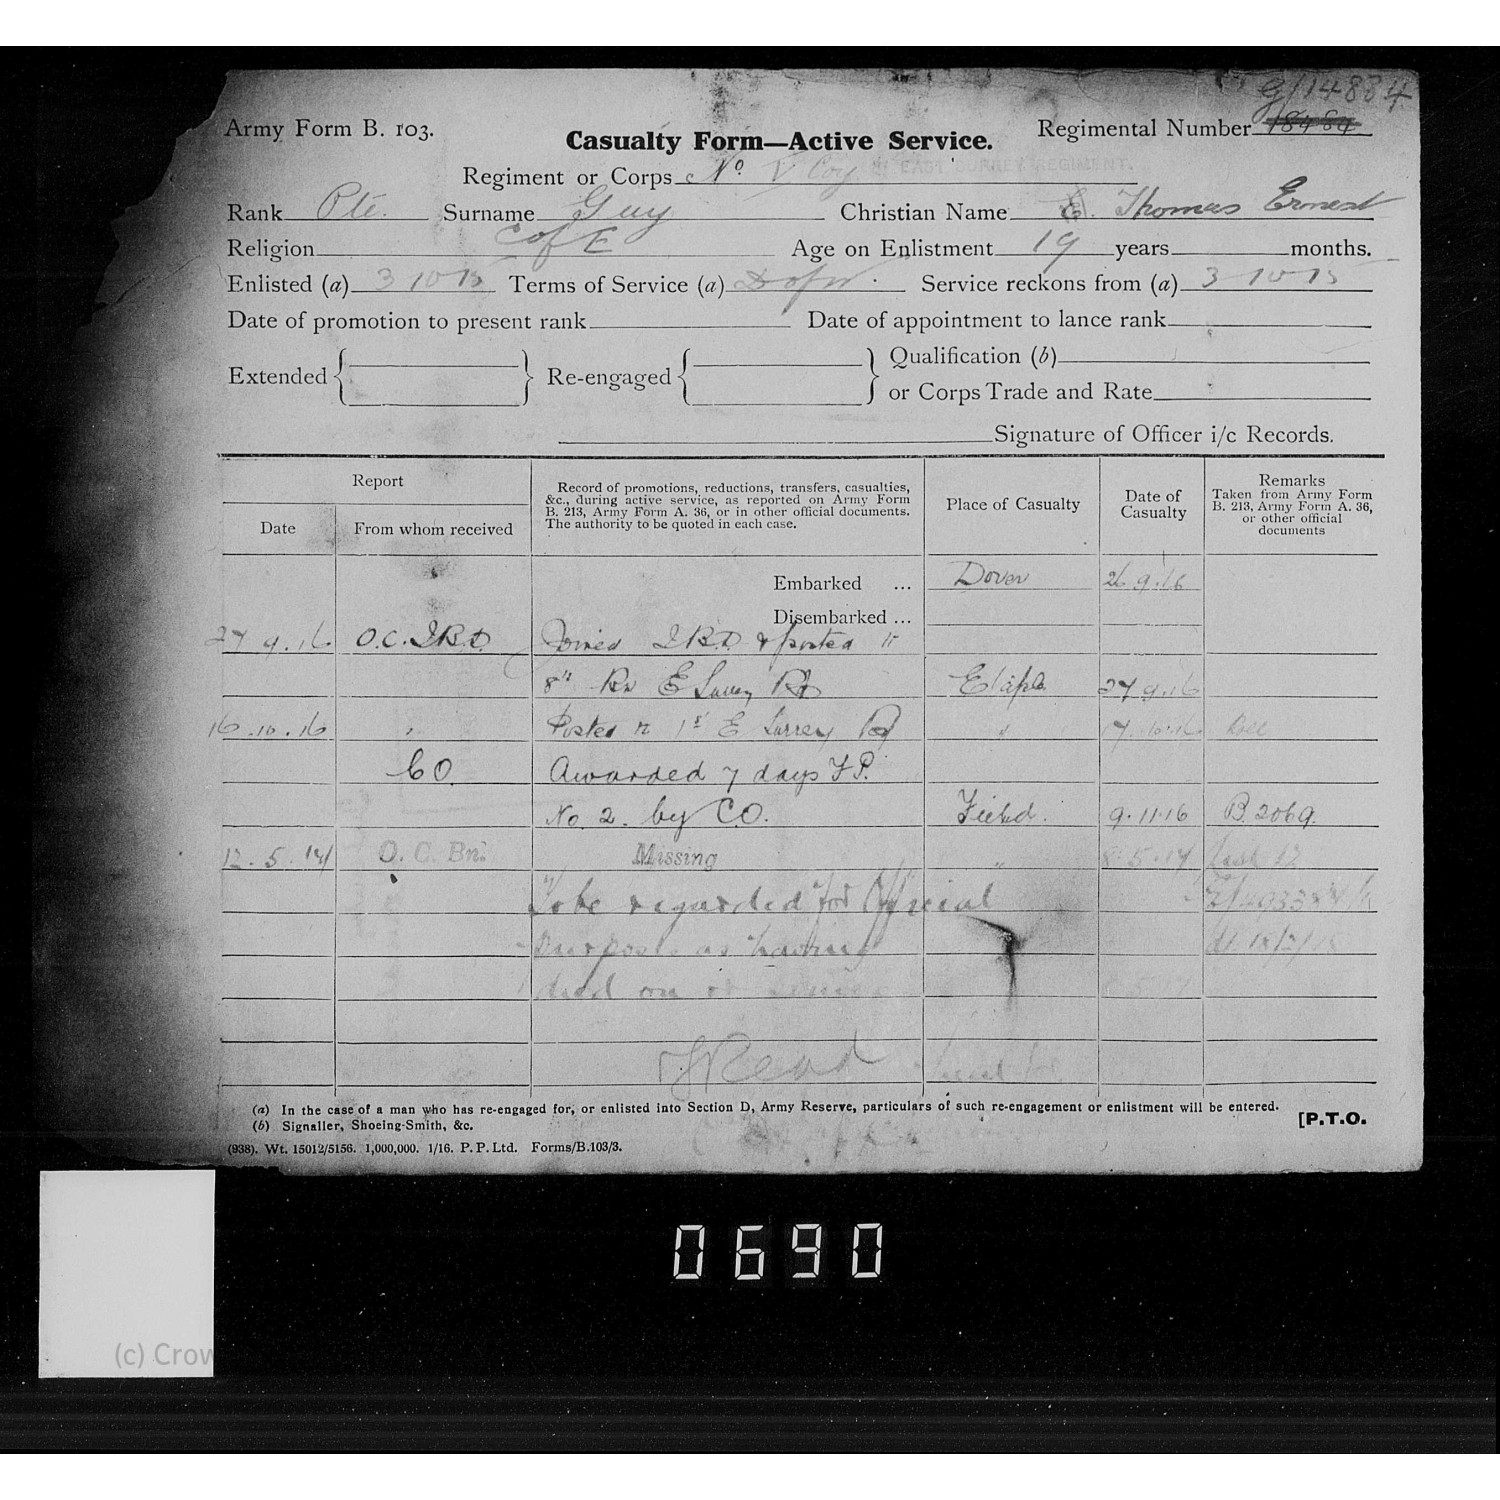 G/14884
Army Form B. 103.
Casualty Form—Active Service.
Regimental Number 18484
Regiment or Corps No. V Coy EAST SURREY REGIMENT.
Rank Pte. Surname Guy Christian Name E. Thomas Ernest
Religion C of E Age on Enlistment 19 years months.
Enlisted (a) 3 10 15 Terms of Service (a) D of W. Service reckons from (a) 3 10 15
Date of promotion to present rank Date of appointment to lance rank
Extended Re-engaged Qualification (b)
or Corps Trade and Rate
Signature of Officer i/c Records.
Report
Date
From whom received
Record of promotions, reductions, transfers, casualties,
&c., during active service, as reported on Army Form
B. 213, Army Form A. 36, or in other official documents.
The authority to be quoted in each case.
Place of Casualty
Date of
Casualty
Remarks
Taken from Army Form
B. 213, Army Form A. 36,
or other official
documents
Embarked ... Dover 26.9.16
Disembarked ...
27 9.16 O.C. IBD Joined IBD & posted to
8th Bn E Surrey Rgt Etaples 27 9.16
16.10.16 " Posted to 1st E Surrey Rgt " 17.10.16
CO. Awarded 7 days F.P.
No. 2. by C.O. Field. 9.11.16 B.2069.
12.5.17 O. C. Bn. Missing " 8.5.17
To be regarded for Official
purposes as having
died on or since
(a) In the case of a man who has re-engaged for, or enlisted into Section D, Army Reserve, particulars of such re-engagement or enlistment will be entered.
(b) Signaller, Shoeing-Smith, &c.
[P.T.O.
(938). Wt. 15012/5156. 1,000,000. 1/16. P. P. Ltd. Forms/B.103/3.
0690
(c) Crow